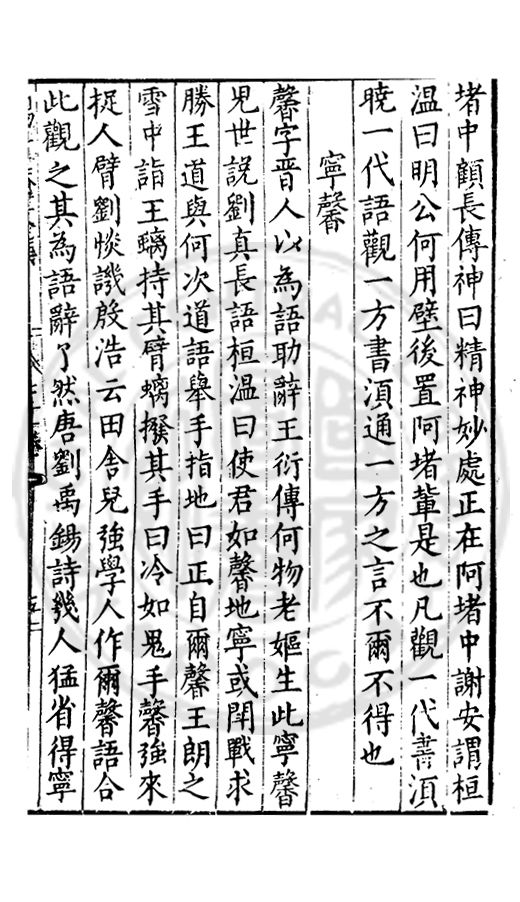 堵中顧長傳神曰精神妙處正在阿堵中謝安謂桓
温曰明公何用壁後置阿堵輩是也凡觀一代書湏
曉一代語觀一方書湏通一方之言不爾不得也
寧馨
馨字晋人以為語助辭王衍傳何物老嫗生此寧馨
兒世說劉真長語桓温曰使君如馨地寧或鬥戰求
勝王道與何次道語舉手指地曰正自爾馨王朗之
雪中詣王螭持其臂螭撥其手曰冷如鬼手馨強來
捉人臂劉惔譏殷浩云田舍兒強學人作爾馨語合
此觀之其為語辭了然唐劉禹錫詩幾人猛省得寧